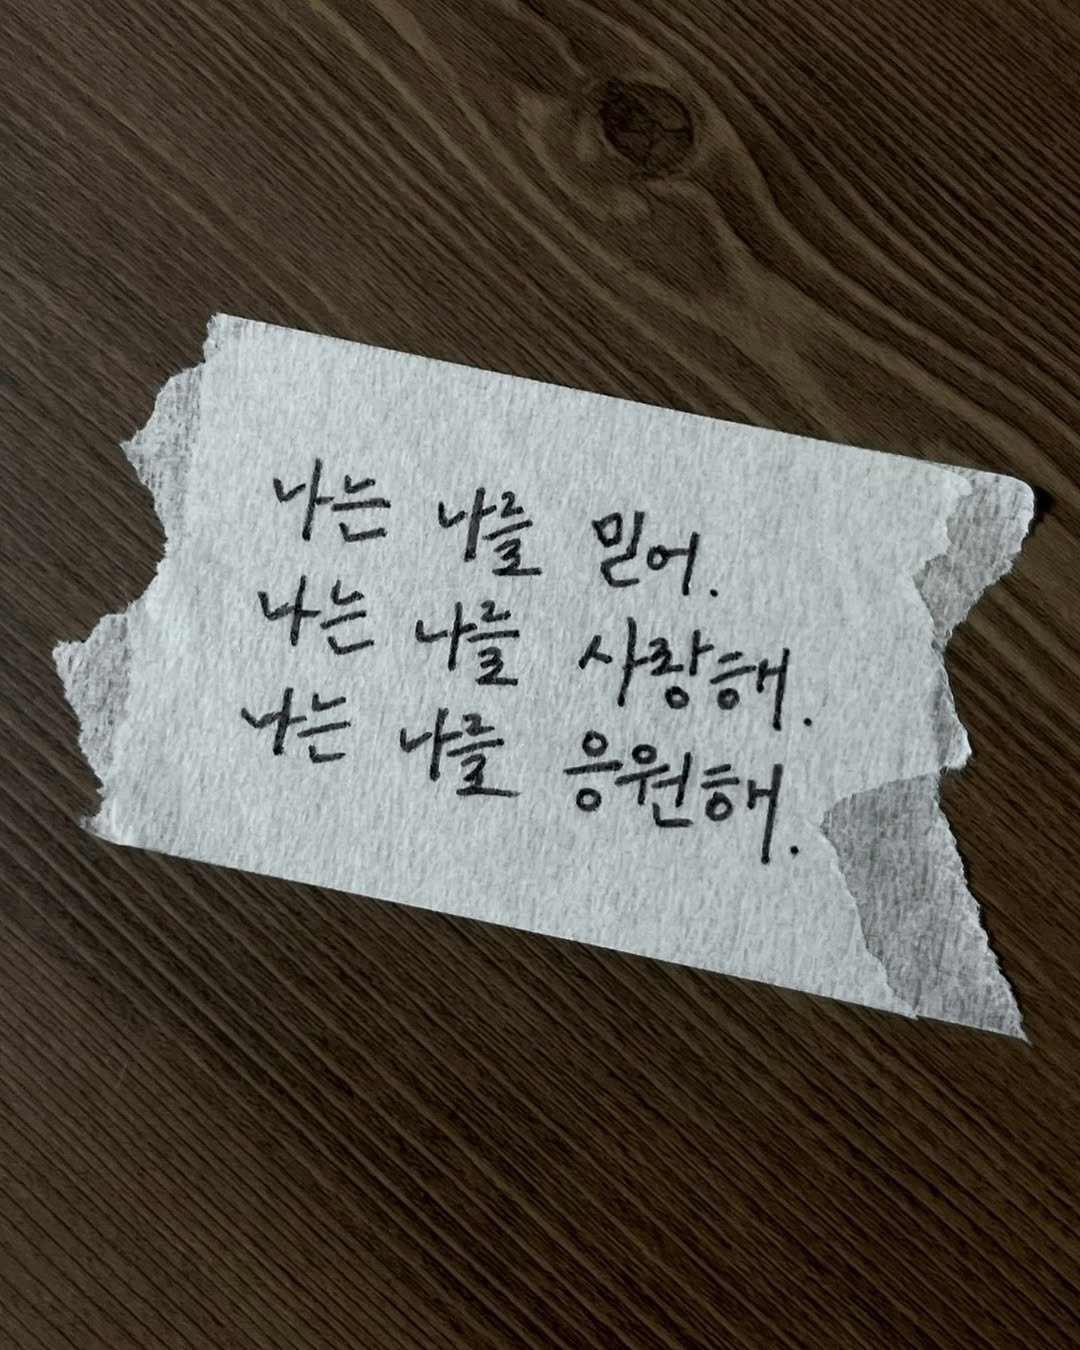 나는 나를 믿어.
나는 나를 사랑해.
나는 나를 응원해.